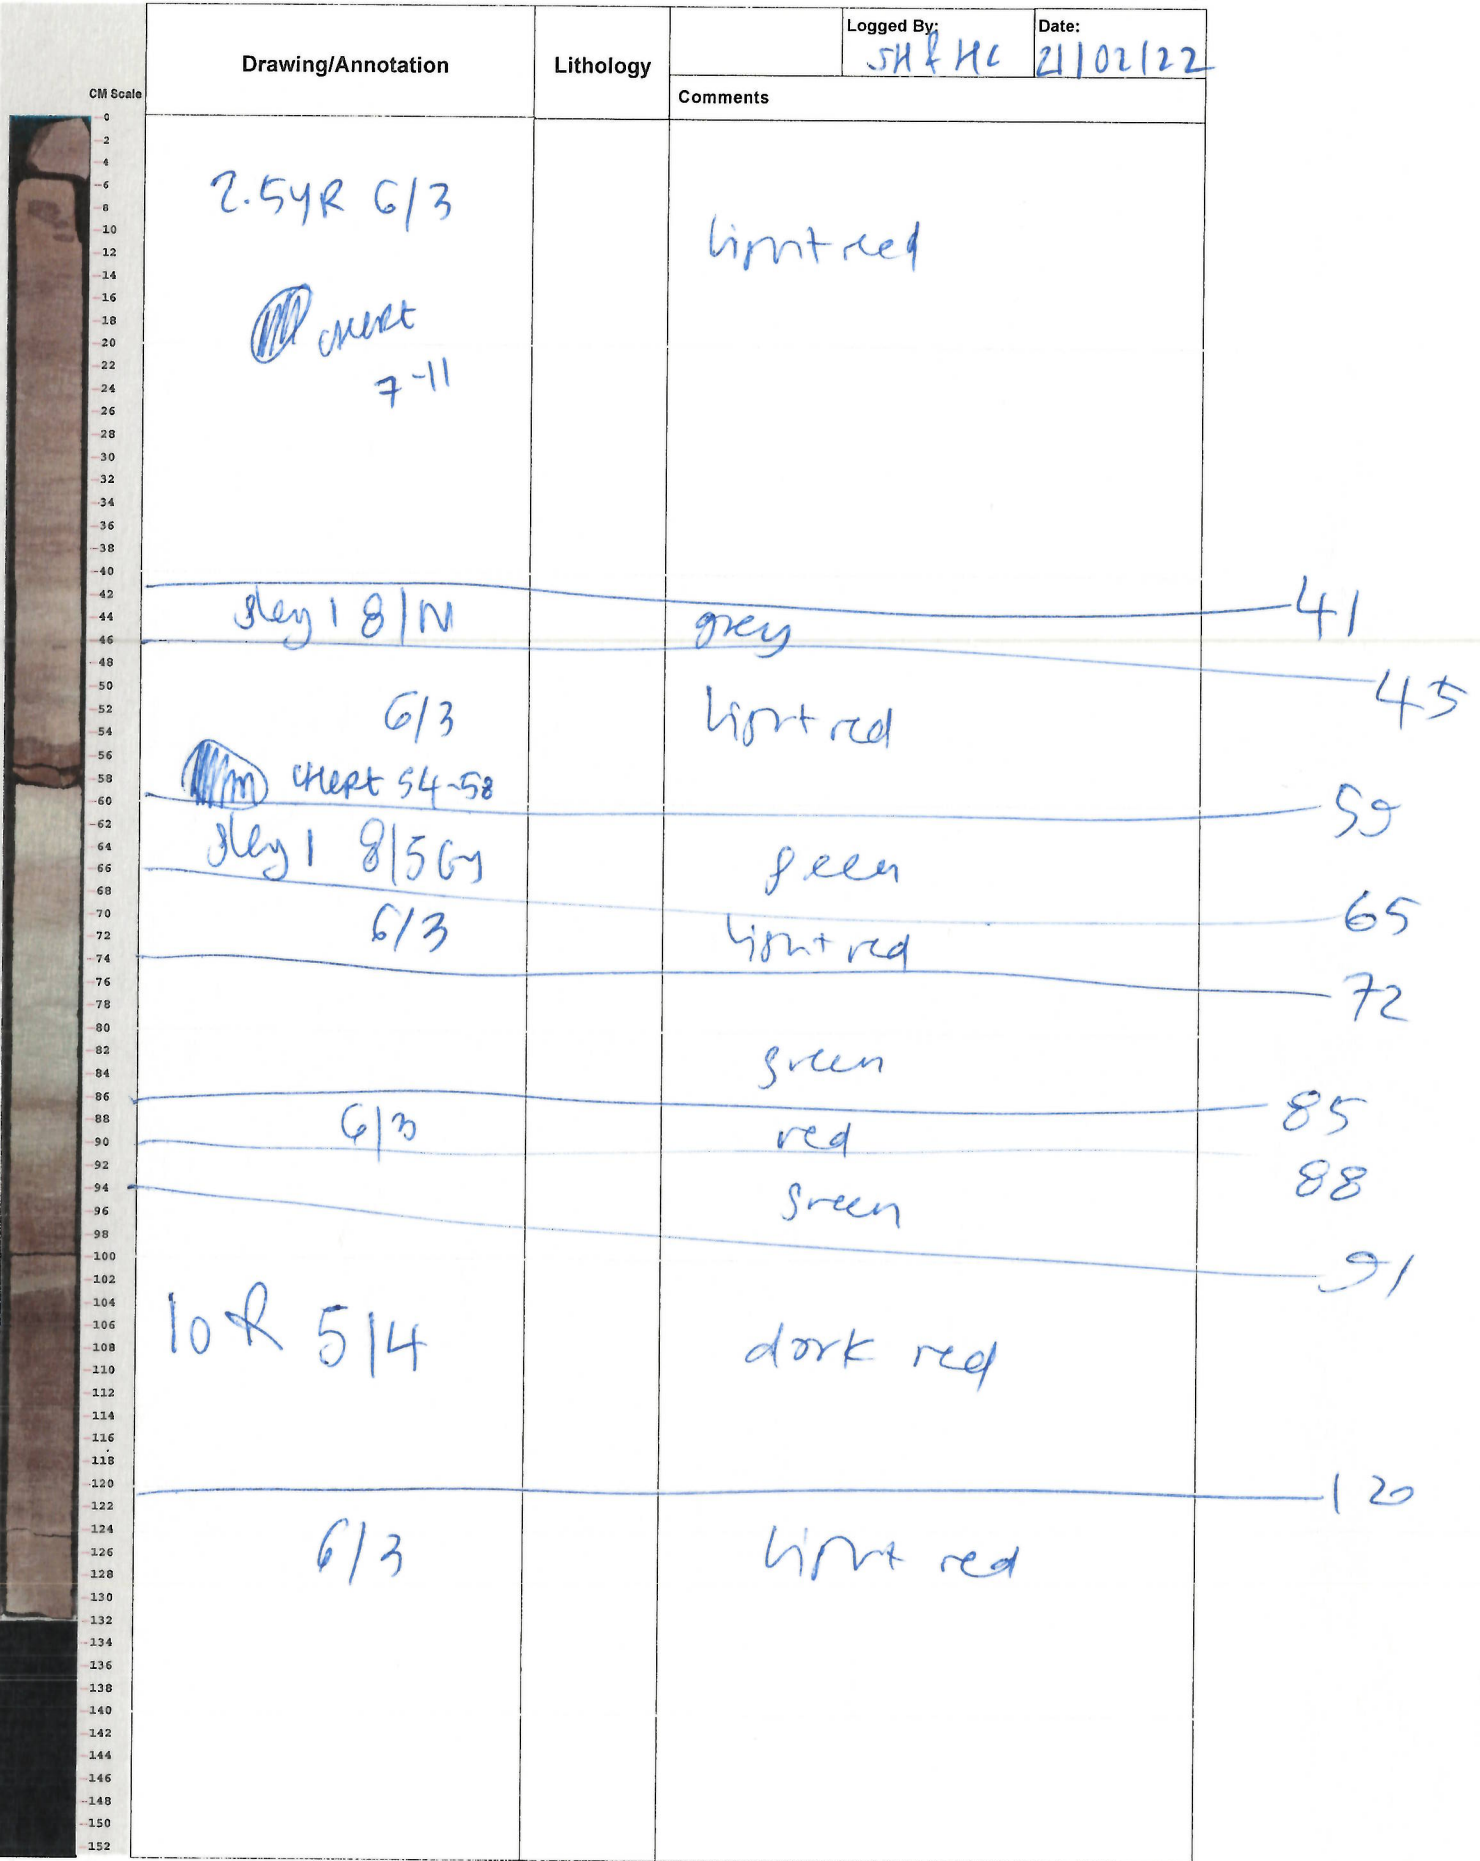 Logged By:
Date:
Drawing/Annotation
Lithology
SH & HC
21/02/22
CM Scale
Comments
0
2
4
6
8
10
12
14
16
18
20
22
24
26
28
30
32
34
36
38
40
42
44
46
48
50
52
54
56
58
60
62
64
66
68
70
72
74
76
78
80
82
84
86
88
90
92
94
96
98
100
102
104
106
108
110
112
114
116
118
120
122
124
126
128
130
132
134
136
138
140
142
144
146
148
150
152
2.5YR 6/3
light red
chert
7-11
41
gley 1 8/N
grey
45
6/3
light red
CHERT 54-58
59
gley 1 8/5Gy
green
65
6/3
light red
72
green
85
6/3
red
88
green
91
10R 5/4
dark red
120
6/3
light red